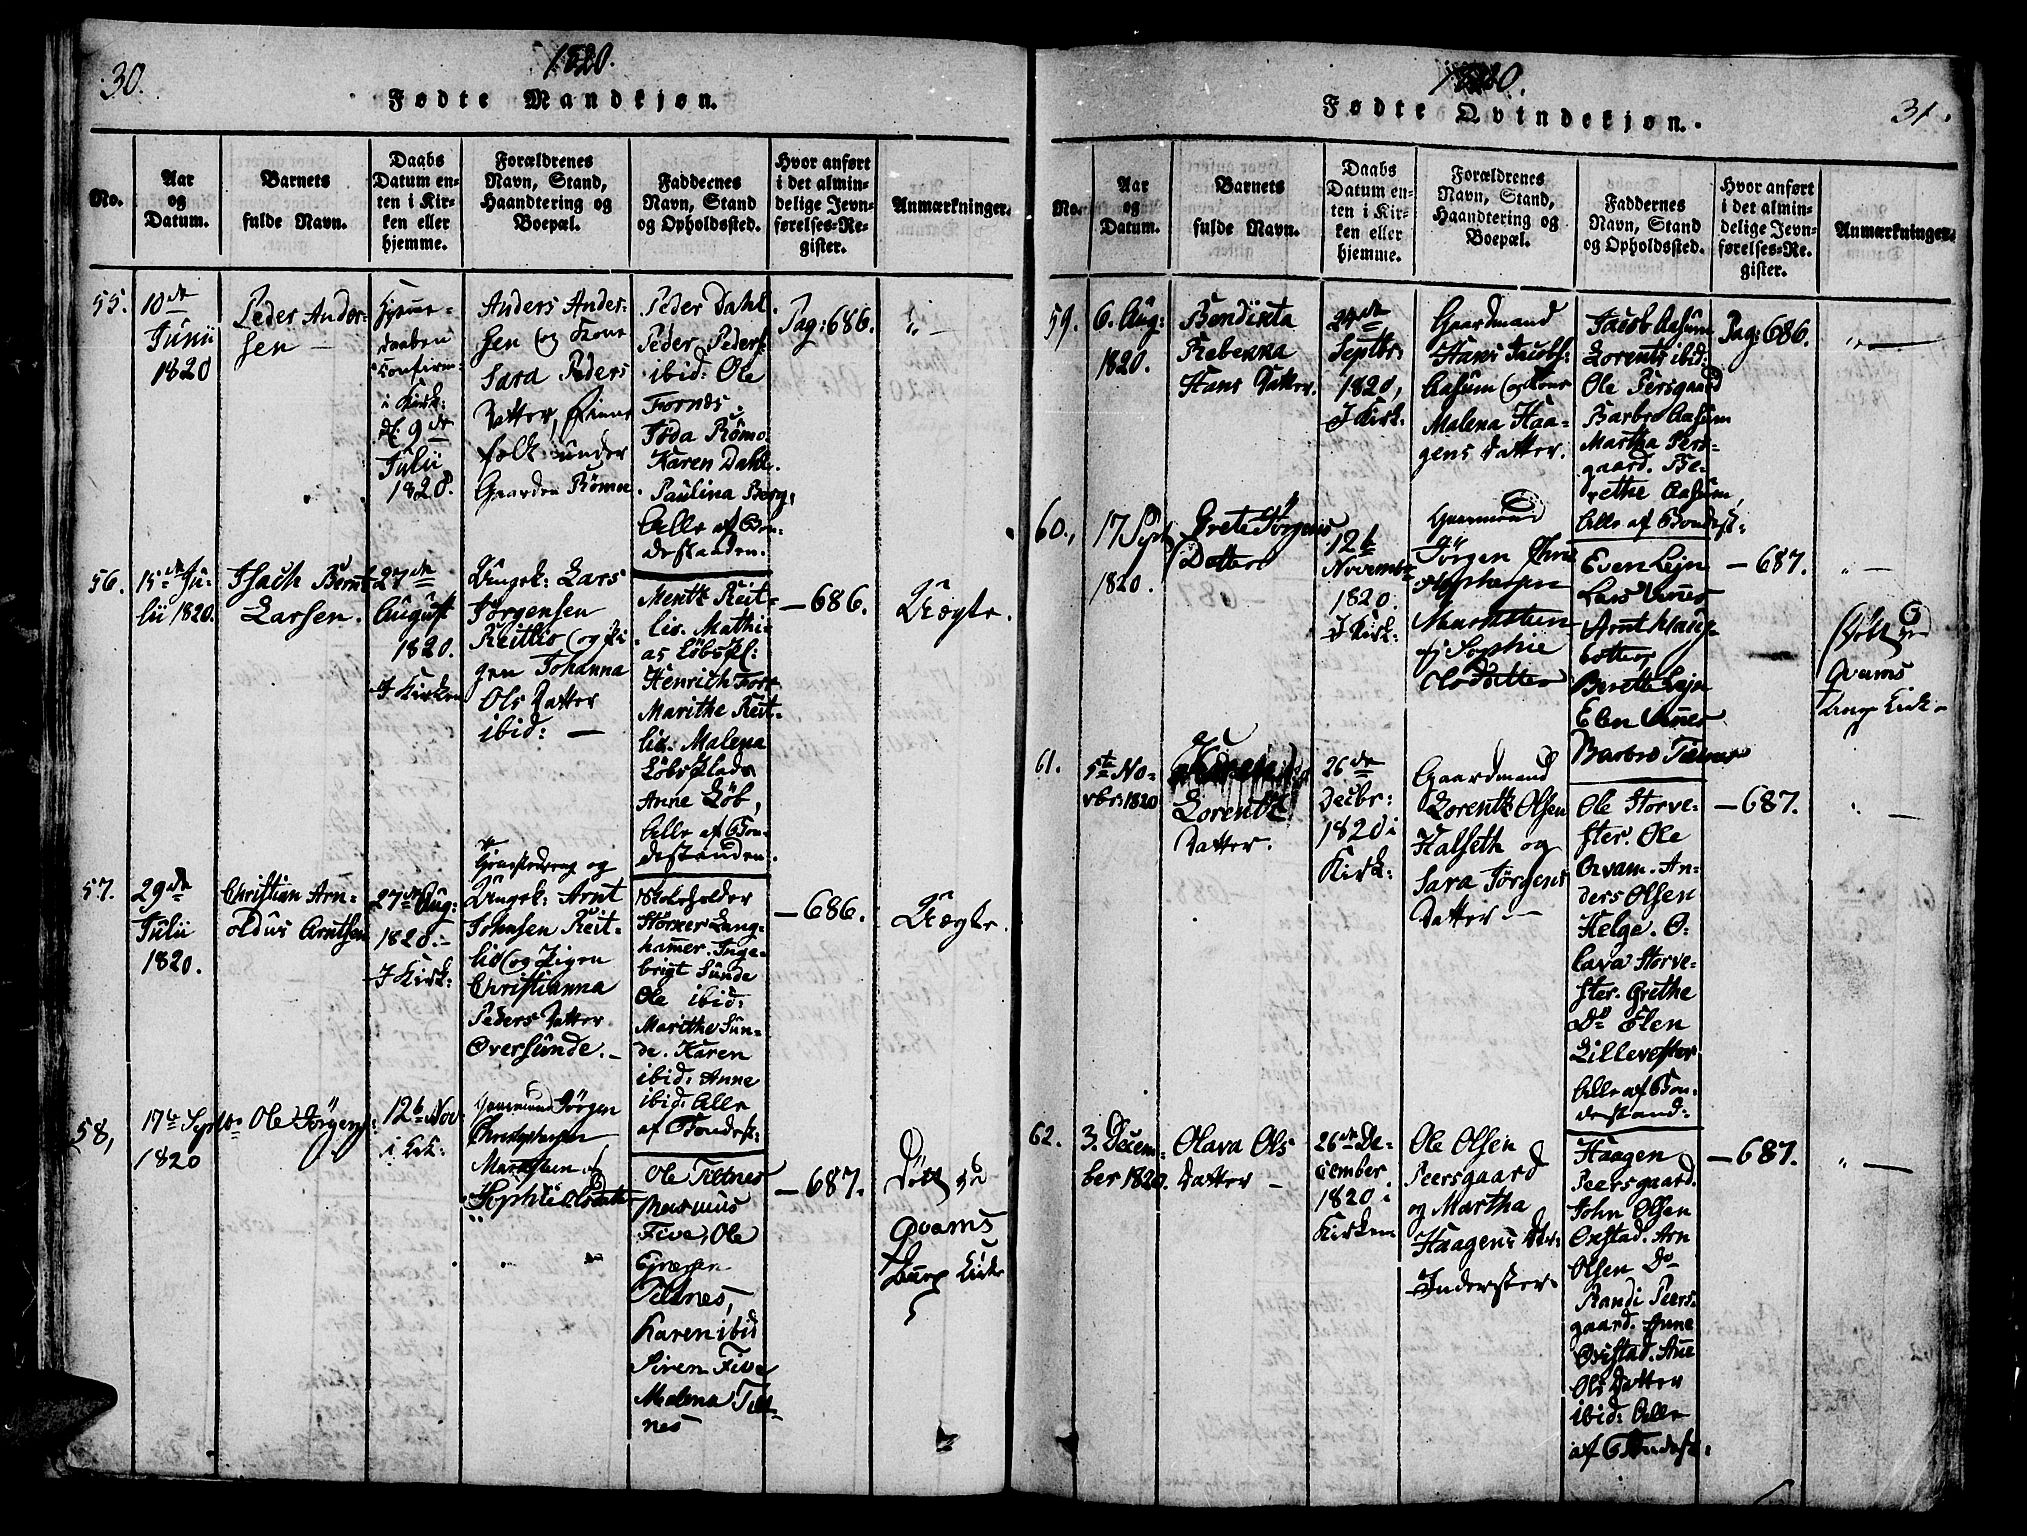 30.
1820.
Fødte Mandkjøn.
No.
Aar
og
Datum.
Barnets
fulde Navn.
Daabs
Datum en-
ten i Kir-
ken eller
hjemme.
Forældrenes
Navn, Stand,
Haandtering og
Boepæl.
Faddernes
Navn, Stand
og Opholdssted.
Hvor anført
i det almin-
delige Jevn-
førelses-Re-
gister.
Anmærkninger.
55.
10de
Junii
1820
Peder Ander-
sen
Hjemme-
daaben
confirm:
i Kirk:
d. 9de
Julii
1820.
Anders Ander-
sen og Kone
Sara Peders
Datter, Finne
folk under
Gaarden Römoe
Peder Dahl.
Peder Peders.
ibid: Ole
Fornes
Töda Römo.
Karen Dahl.
Paulina Berg,
Alle af Bon-
destanden.
Pag: 686.
56.
15de Ju-
lii 1820.
Isach Bernt
Larsen.
27de
August
1820.
I Kirken
Ungek: Lars
Jörgensen
Reitlio og Pi
gen Johanna
Ols Datter
ibid:
Mentz Reit-
lio. Mathi-
as Löbspl:
Henrich
Marithe Reit-
lio. Malena
Löbsplads
Anne Löb,
Alle af Bon-
destanden.
686.
Uægte.
57.
29de
Julii
1820.
Christian Arn-
oldus Arntsen
27de Aug:
1820.
I Kirk:
og
Ungek: Arnt
Johnsen Reit-
lio og Pigen
Christianna
Peders Datter
Oversunde.
Skoleholder
Störker Lang-
hamer. Inge-
brigt Sunde
Ole ibid:
Marithe Sun-
de. Karen
ibid: Anne
ibid: Alle
af Bondest:
686.
Uægte.
58,
17de
1820
Ole Jörgens:
12te Nov
i Kirk:
Gaarmand Jörgen
Sophie Olsdatter
Ole Tiltnes
Rasmus
Five, Ole
Tiltnes,
Karen ibid
Siren Five
Malena Tilt-
nes
687.
Döbt
Qvams
Kirke
1820.
31.
Fødte Qvindekjøn.
No.
Aar
og
Datum.
Barnets
fulde Navn.
Daabs
Datum en-
ten i Kir-
ken eller
hjemme.
Forældrenes
Navn, Stand,
Haandtering og
Boepæl.
Faddernes
Navn, Stand
og Opholdssted.
Hvor anført
i det almin-
delige Jevn-
førelses-Re-
gister.
Anmærkninger.
59.
6. Aug:
1820.
Bendixta
Rebekka
Hans Datter.
24de
Septbr:
1820,
I Kirk:
Gaardmand
Hans Jacobs:
Aasum og Kone
Malena Haa-
gens Datter.
Jacob Aasum
Lorents ibid:
Ole Persgaard
Barbro Aasum
Martha Pers-
gaard. Be-
rethe Aasum,
Alle af Bondest:
Pag: 686.
60.,
17 Sept
1820.
Grete Jörgens
Datter
12te
Novembr
1820.
I Kirk:
Gaarmand
Jörgen
Sophie
Olsdatter
Even Lejn
Lars
Arnt
Berette Lejn
Elen
Barbro
687.
Döbt
Qvams
Kirk
61.
5te No-
vbr: 1820
Lorentz
Datter.
26de
Decbr:
1820 i
Kirk:
Gaardmand
Lorentz Olsen
Halseth og
Sara Jörgens
Datter
Ole Storve-
ster. Ole
Qvam. An-
ders Olsen
Helge. O-
lava Storve-
ster. Grethe
Do Elen
Lillevester
Alle af Bon-
destand:
687.
62.
3. Decem-
ber 1820.
Olava Ols
Datter
26de De-
cember
1820 i
Kirken
Ole Olsen
Peersgaard
og Martha
Haagens Dtr:
Inderster
Haagen
Peersgaard.
John Olsen
Oxstad. Arn
Olsen Do
Randi Peers-
gaard. Anne
Oxstad. Ane
Ols Datter
ibid: Alle
af Bondest:
687.